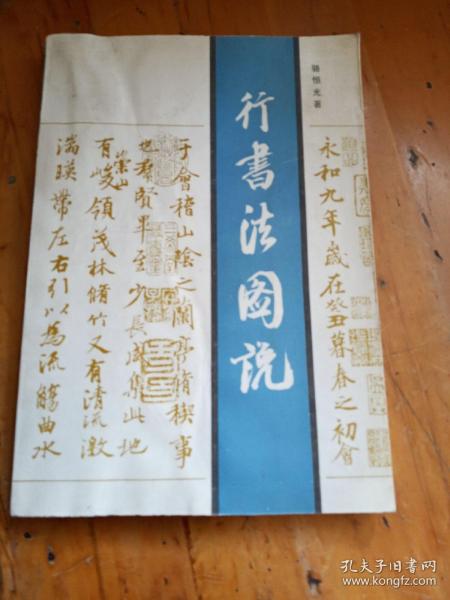 骆恒光著
行书法图说
永和九年歲在癸丑暮春之初會
于會稽山陰之蘭亭脩稧事
也羣賢畢至少長咸集此地
有崇山峻領茂林脩竹又有清流激
湍暎帶左右引以為流觴曲水
孔夫子旧书网
www.kongfz.com